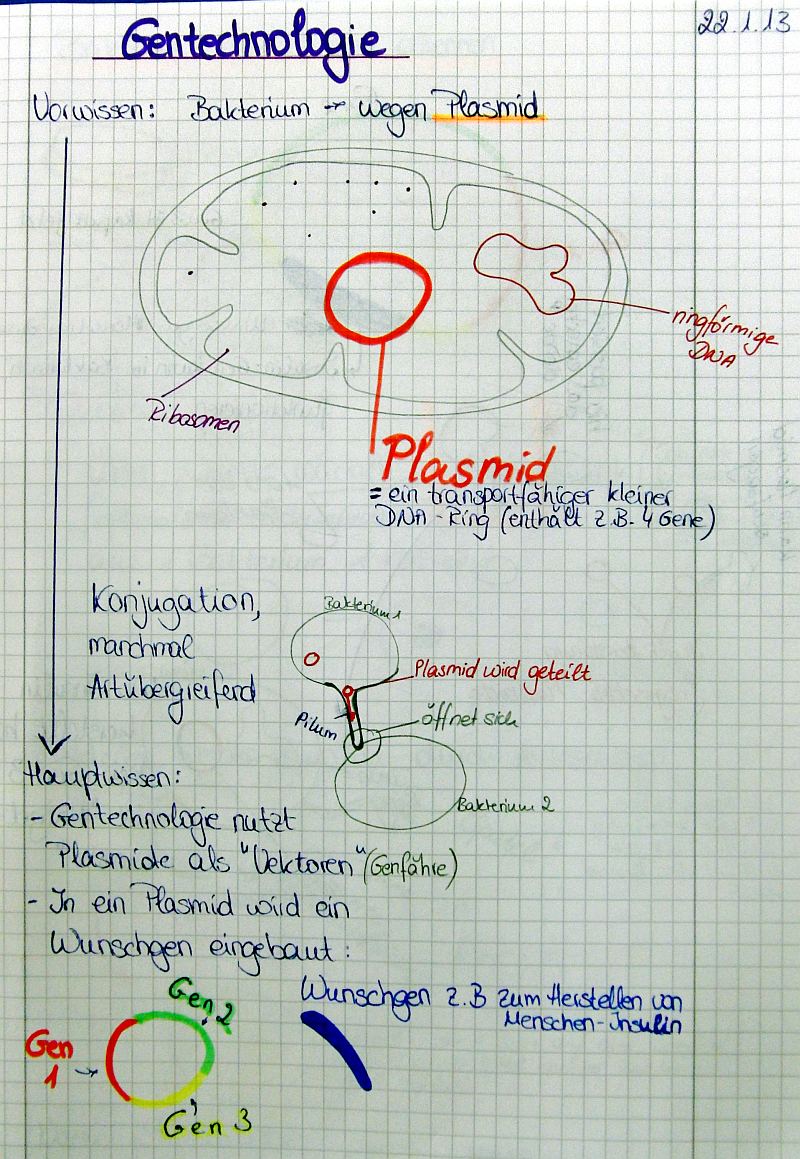 22.1.13
Gentechnologie
Vorwissen: Bakterium → wegen Plasmid
ringförmige
DNA
Ribosomen
Plasmid
= ein transportfähiger kleiner
DNA-Ring (enthält z.B. 4 Gene)
Konjugation,
manchmal
Artübergreifend
Bakterium 1
Plasmid wird geteilt
Pilum
öffnet sich
Bakterium 2
Hauptwissen:
- Gentechnologie nutzt
Plasmide als "Vektoren" (Genfähre)
- In ein Plasmid wird ein
Wunschgen eingebaut:
Gen 2
Gen
1
Gen 3
Wunschgen z.B zum Herstellen von
Menschen-Insulin